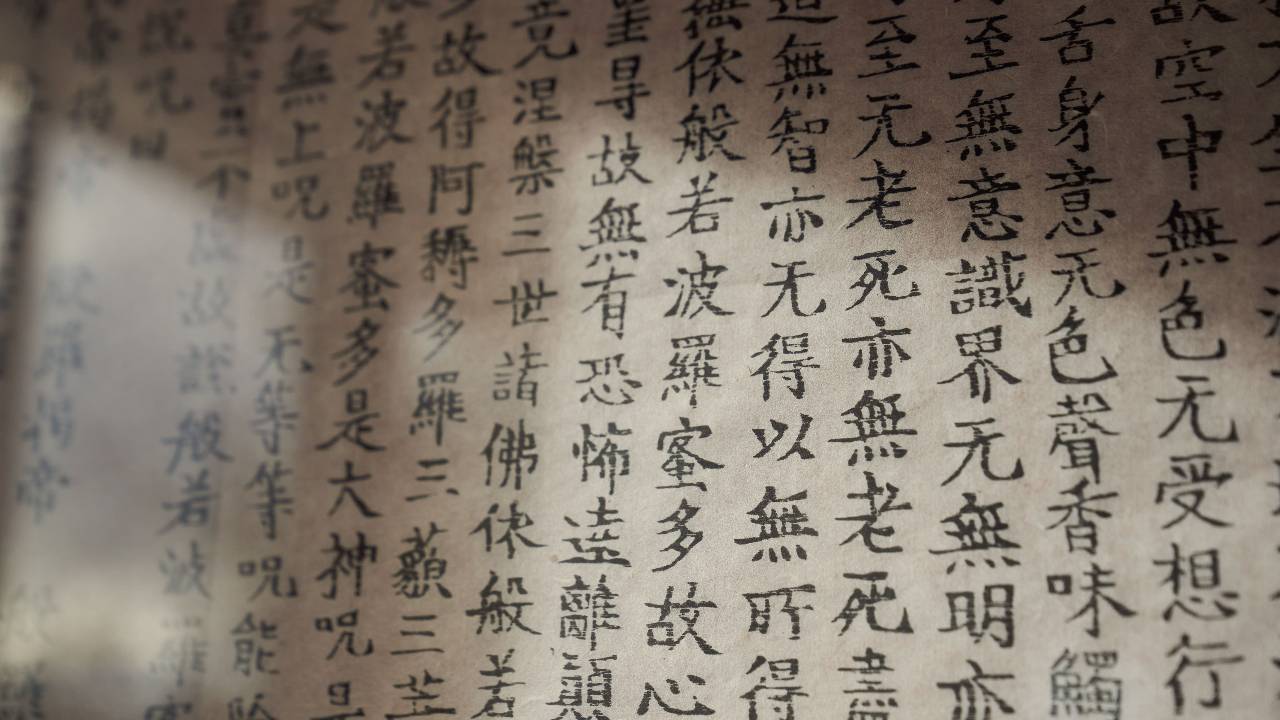 故空中無色无受想行
舌身意无色聲香味觸
至無意識界无無明亦
至无老死亦無老死盡
道無智亦无得以無所得
依般若波羅蜜多故心
罣㝵故無有恐怖遠離顛
竟涅槃三世諸佛依般若
多故得阿耨多羅三藐三菩
般若波羅蜜多是大神呪是
是無上呪是无等等呪能除
真實不虛故說般若波羅蜜
說呪曰